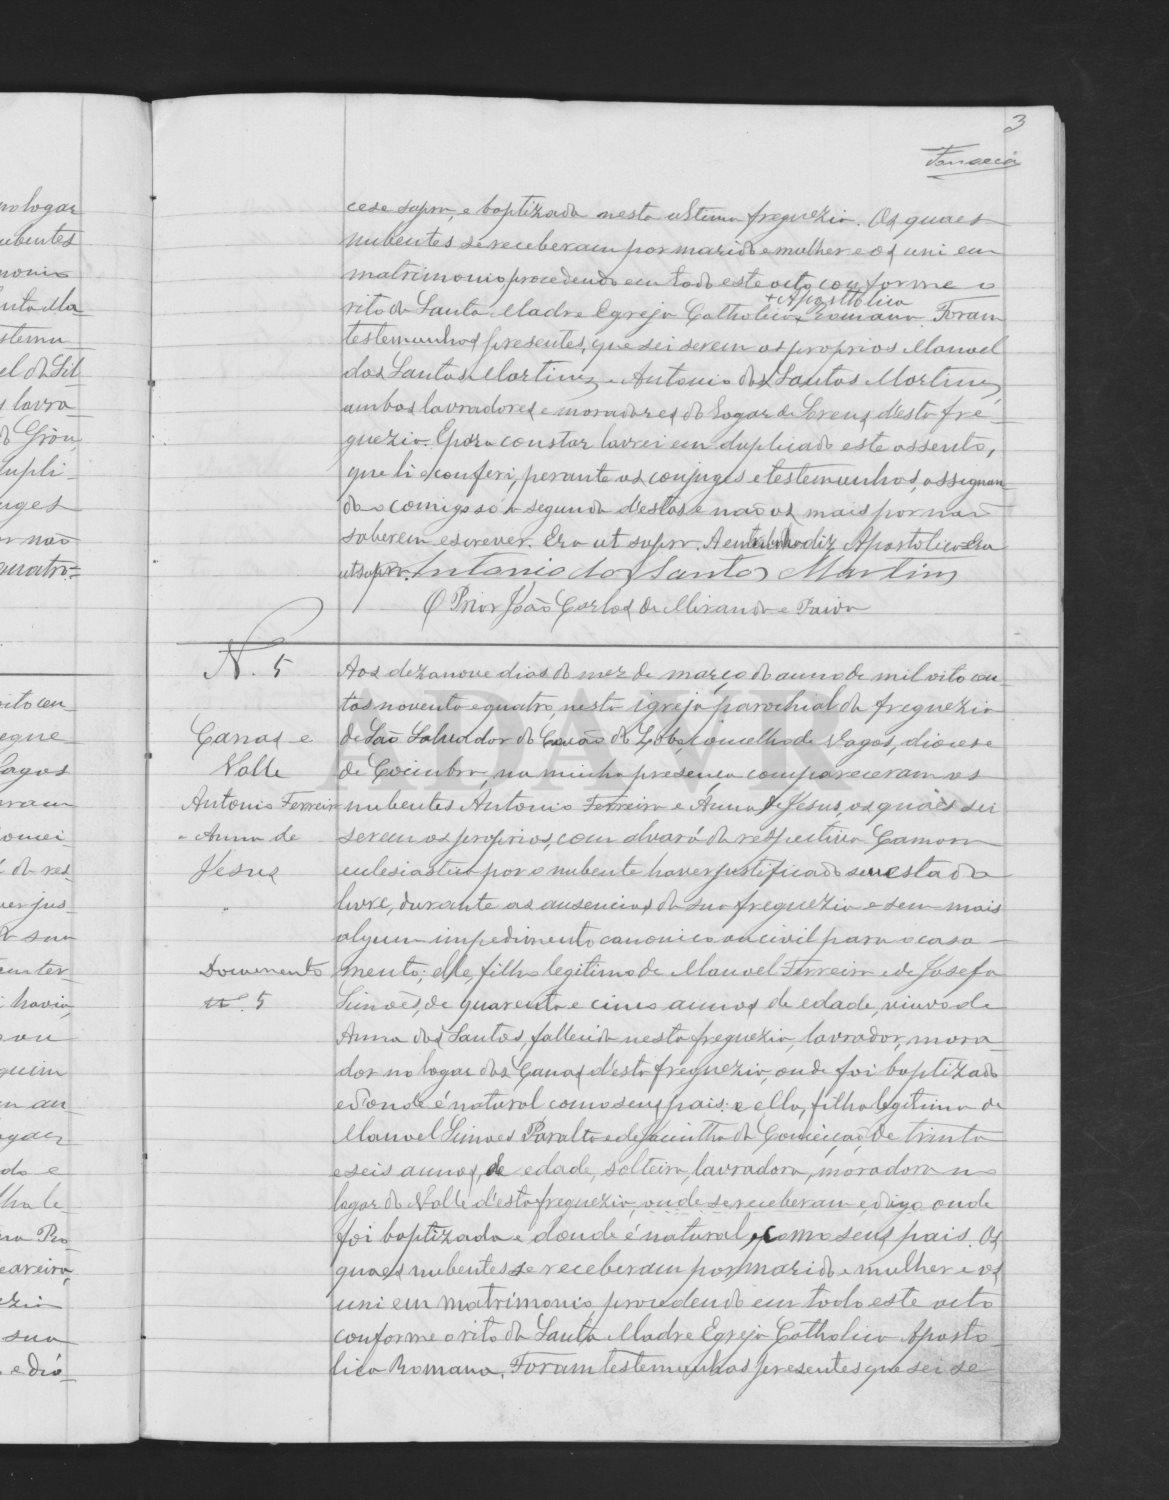 3
Fonseca
cese supra, e baptizada nesta ultima freguezia. Os quaes
nubentes se receberam por marido e mulher e os uni em
matrimonio procedendo em todo este acto conforme o
rito da Santa Madre Egreja Catholica + Apostolica Romana. Foram
testemunhas presentes, que sei serem os proprios Manoel
dos Santos Martins e Antonio dos Santos Martins,
ambos lavradores e moradores do logar de Lorens d'esta fre-
guezia. E para constar lavrei em duplicado este assento,
que li e conferi, perante os conjuges e testemunhas, assignan-
do comigo só a segunda d'estas e não os mais por não
saberem escrever. Era ut supra. A entrelinha diz Apostolica. Era
ut supra. Antonio dos Santos Martins
O Prior João Carlos de Miranda e Paiva
N. 5
Canas e
Valle
Antonio Ferreira
e Anna de
Jesus
"
Documento
nº. 5
Aos dezanove dias do mez de março do anno de mil oito cen-
tos noventa e quatro, nesta igreja parochial da freguezia
de São Salvador do Covão do Lobo, concelho de Vagos, diocese
de Coimbra, na minha presença compareceram os
nubentes Antonio Ferreira e Anna de Jesus, os quaes sei
serem os proprios, com alvará da respectiva Camara
ecclesiastica por o nubente haver justificado seu estado
livre, durante as ausencias da sua freguezia e sem mais
algum impedimento canonico ou civil para o casa-
mento; elle, filho legitimo de Manoel Ferreira e de Josefa
Simões, de quarenta e cinco annos de edade, viuvo de
Anna dos Santos, fallecida nesta freguezia, lavrador, mora-
dor no logar das Canas d'esta freguezia, onde foi baptizado
e d'onde é natural como seus pais: e ella, filha legitima de
Manoel Simoes Paralta e de Jacintha da Conceição, de trinta
e seis annos, de edade, solteira, lavradora, moradora no
logar do Valle d'esta freguezia, onde se receberam e, digo onde
foi baptizada e donde é natural, como seus pais. Os
quaes nubentes se receberam por marido e mulher e os
uni em matrimonio, procedendo em todo este acto
conforme o rito da Santa Madre Egreja Catholica Aposto-
lica Romana. Foram testemunhas presentes que sei se-